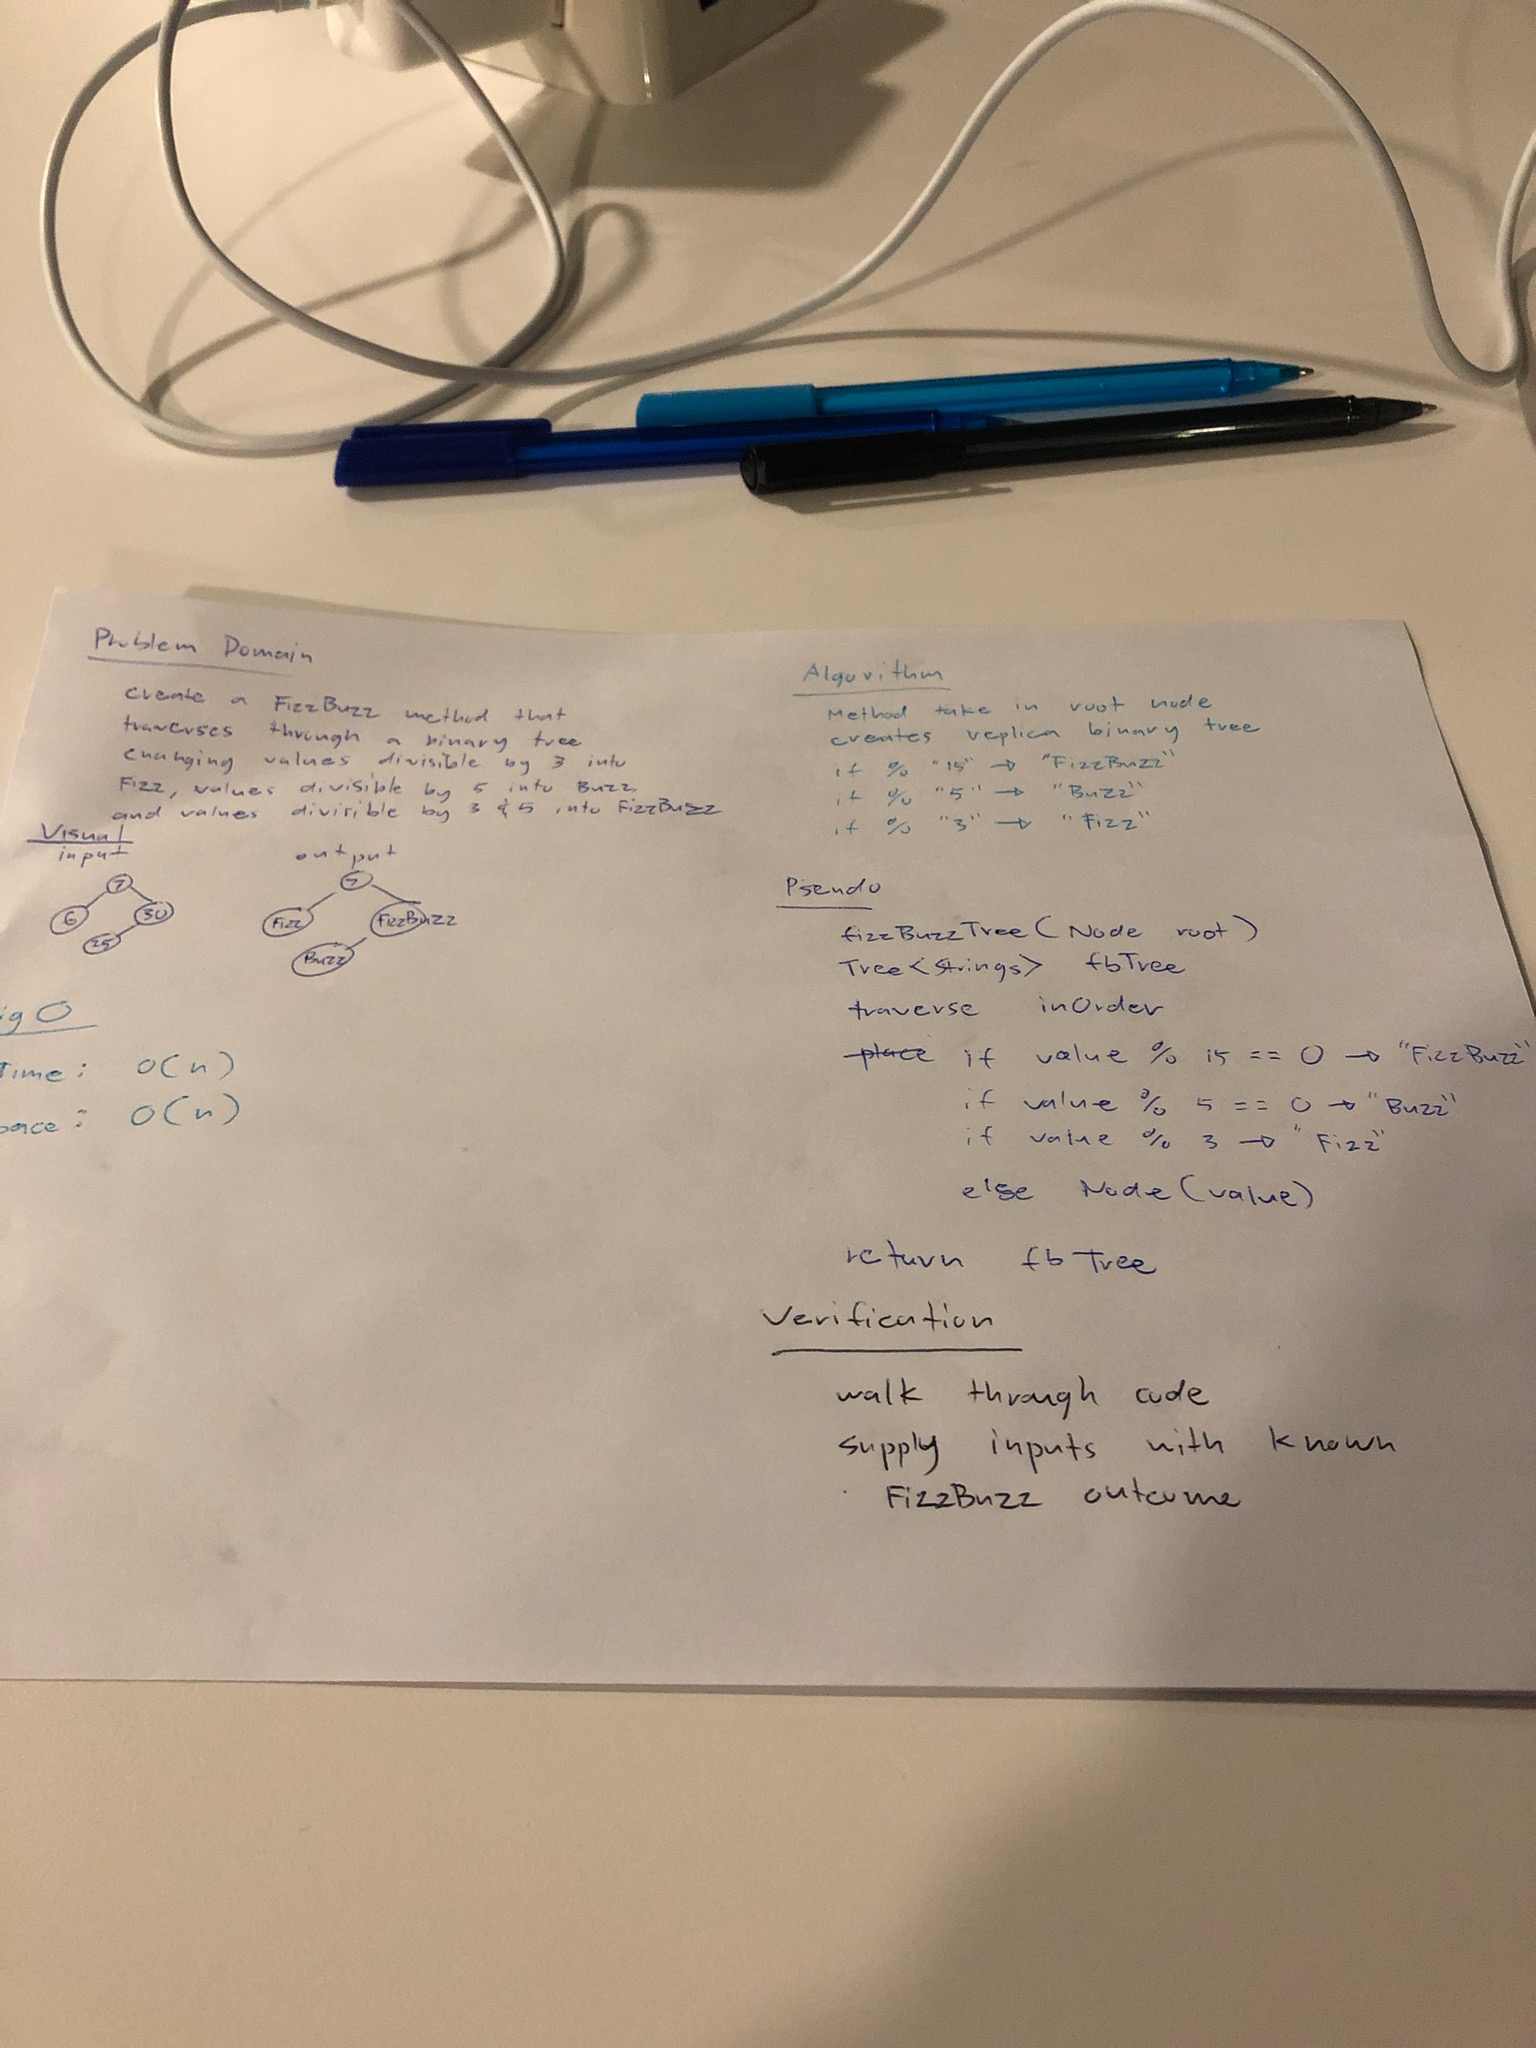 Problem Domain
create a FizzBuzz method that
traverses through a binary tree
changing values divisible by 3 into
Fizz, values divisible by 5 into Buzz,
and values divisible by 3 & 5 into FizzBuzz
Visual
input output
7
6 30
25
7
Fizz FizzBuzz
Buzz
ig O
Time: O(n)
pace: O(n)
Algorithm
Method take in root node
creates replica binary tree
if % "15" → "FizzBuzz"
if % "5" → "Buzz"
if % "3" → "Fizz"
Pseudo
fizzBuzzTree(Node root)
Tree<Strings> fbTree
traverse inOrder
place if value % 15 == 0 → "FizzBuzz"
if value % 5 == 0 → "Buzz"
if value % 3 → "Fizz"
else Node(value)
return fbTree
Verification
walk through code
supply inputs with known
FizzBuzz outcome